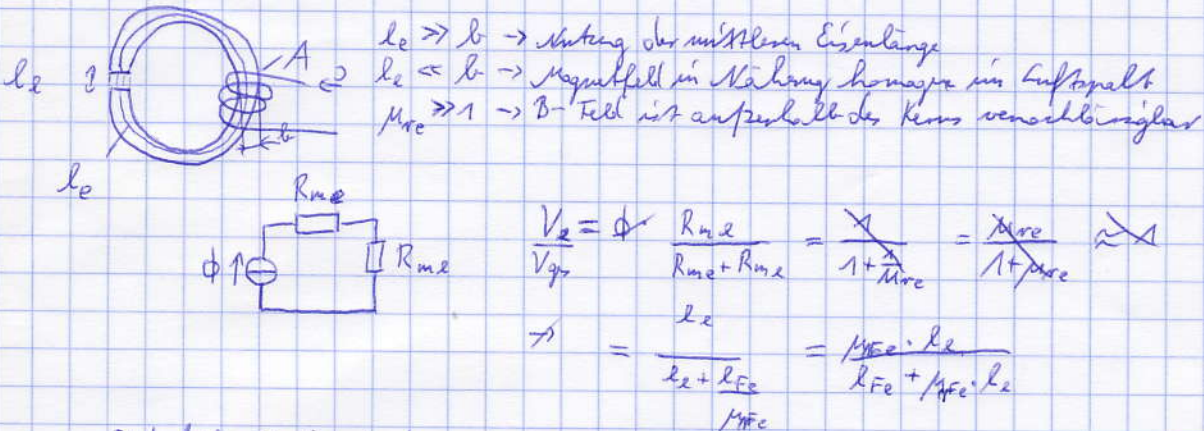 l_e ≫ b → Nutzung der mittleren Eisenlänge
l_l ≪ b → Magnetfeld in Näherung homogen im Luftspalt
μ_re ≫ 1 → B-Feld ist außerhalb des Kerns vernachlässigbar
l_l
A
b
l_e
R_me
ϕ ↑
R_ml
V_l / V_ges = ϕ R_ml / (R_me + R_ml) = 1 / (1 + 1/μ_re) = μ_re / (1 + μ_re) ≈ 1
→ = l_l / (l_l + l_Fe / μ_rFe) = μ_rFe · l_l / (l_Fe + μ_rFe · l_l)